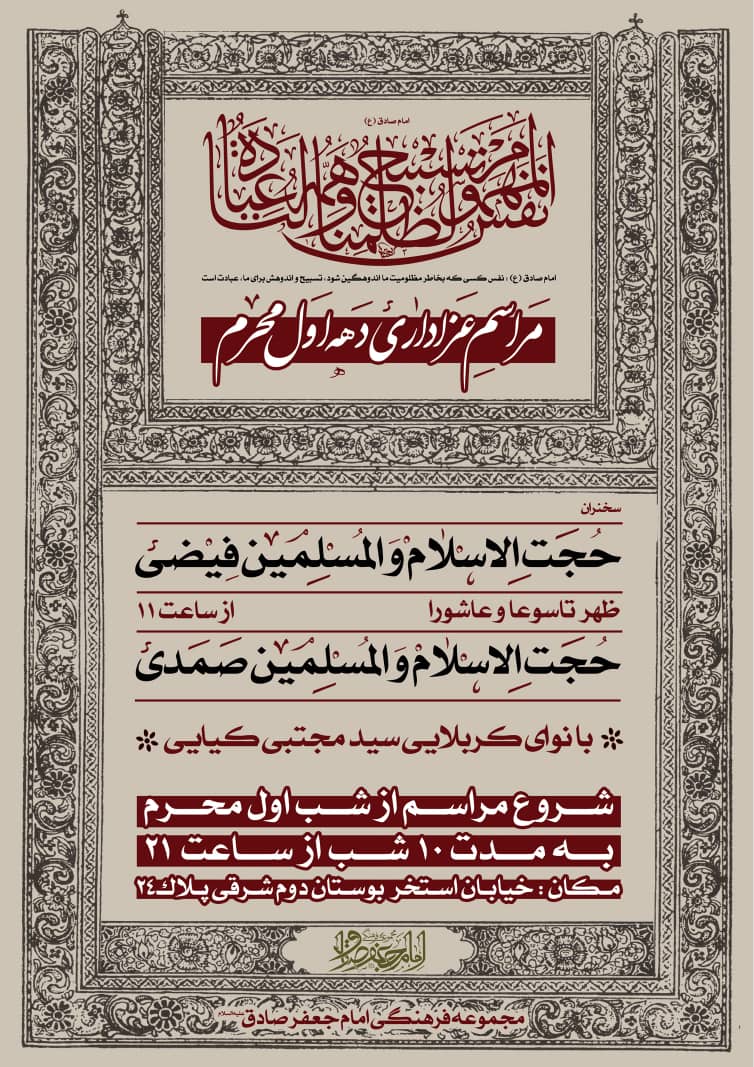 امام صادق (ع)
نفس المهموم لظلمنا تسبیح و همه لنا عبادة
امام صادق (ع) : نفس کسی که بخاطر مظلومیت ما اندوهگین شود، تسبیح و اندوهش برای ما، عبادت است
مراسمِ عزاداری دهه اول محرم
سخنران
حُجَتِ الاسلام وَ المُسلِمین فِیضی
ظهر تاسوعا و عاشورا از ساعت ۱۱
حُجَتِ الاسلام وَ المُسلِمین صَمَدی
با نوای کربلایی سید مجتبی کیایی
شروع مراسم از شب اول محرم
به مدت ۱۰ شب از ساعت ۲۱
مکان : خیابان استخر بوستان دوم شرقی پلاک ۲۴
امام جعفر صادق
مجموعه فرهنگی امام جعفر صادق علیه السلام